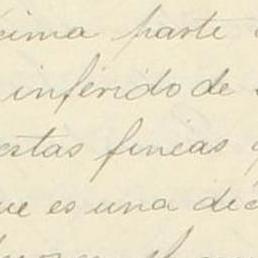 cima parte
inferido de
estas fincas
ue es una déc